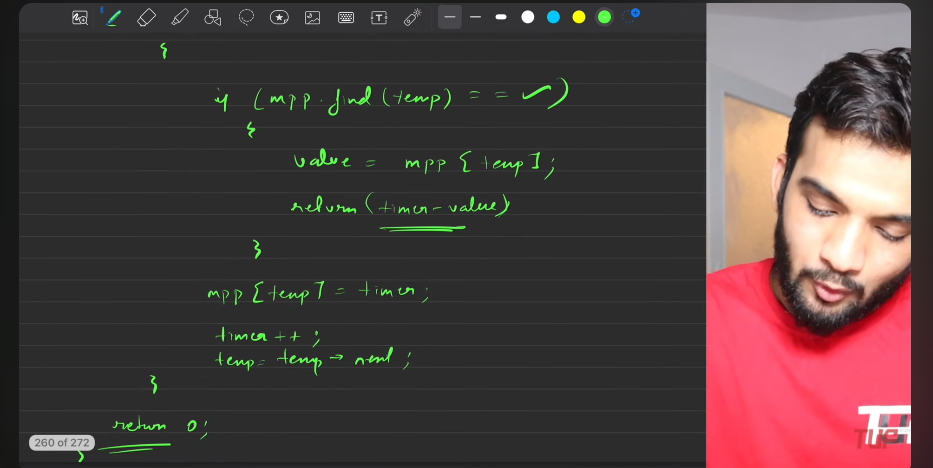 {
if (mpp.find(temp) == ✓)
{
value = mpp[temp];
return(timer-value)
}
mpp[temp] = timer;
timer++;
temp = temp → next;
}
return 0;
260 of 272
}
TUF